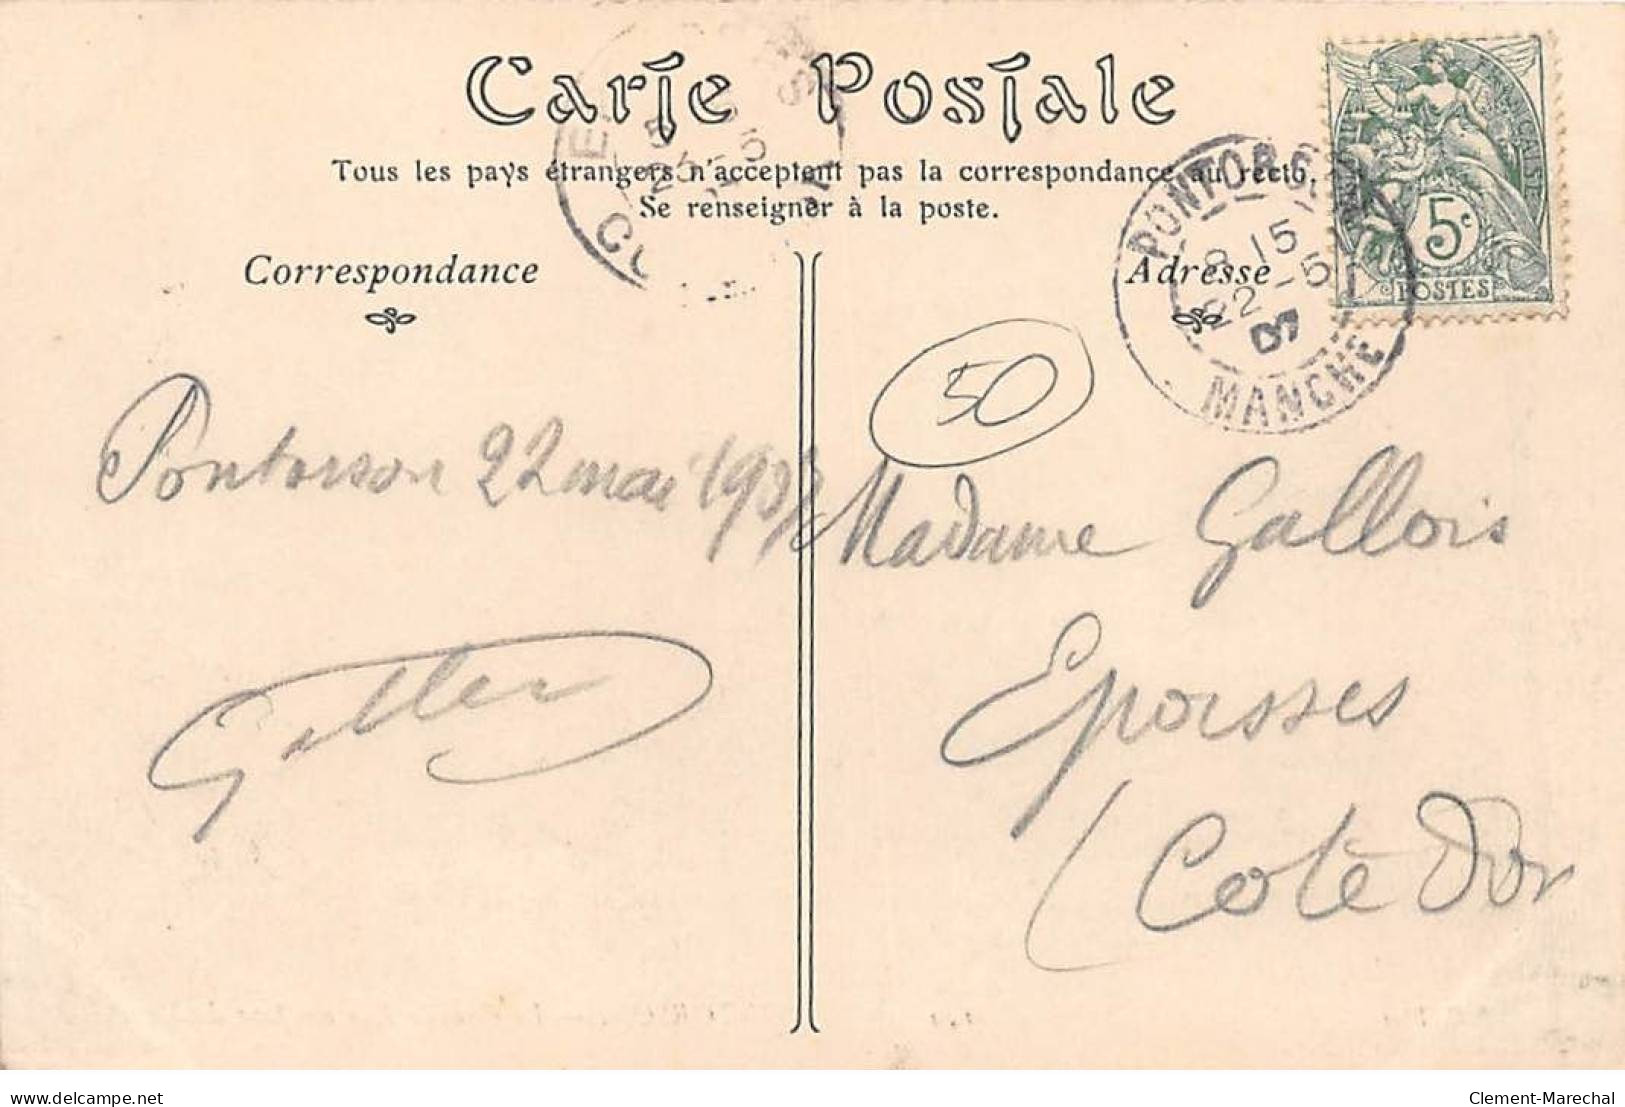 Carte Postale
Tous les pays étrangers n'acceptent pas la correspondance au recto.
Se renseigner à la poste.
Correspondance
Adresse
PONTORSON
8 15
22 - 5
07
MANCHE
RÉPUBLIQUE FRANÇAISE
5c
POSTES
50
Pontorson 22 mai 1907
Madame Gallois
Epoisses
(Cote D'or
delcampe.net
Clement-Marechal